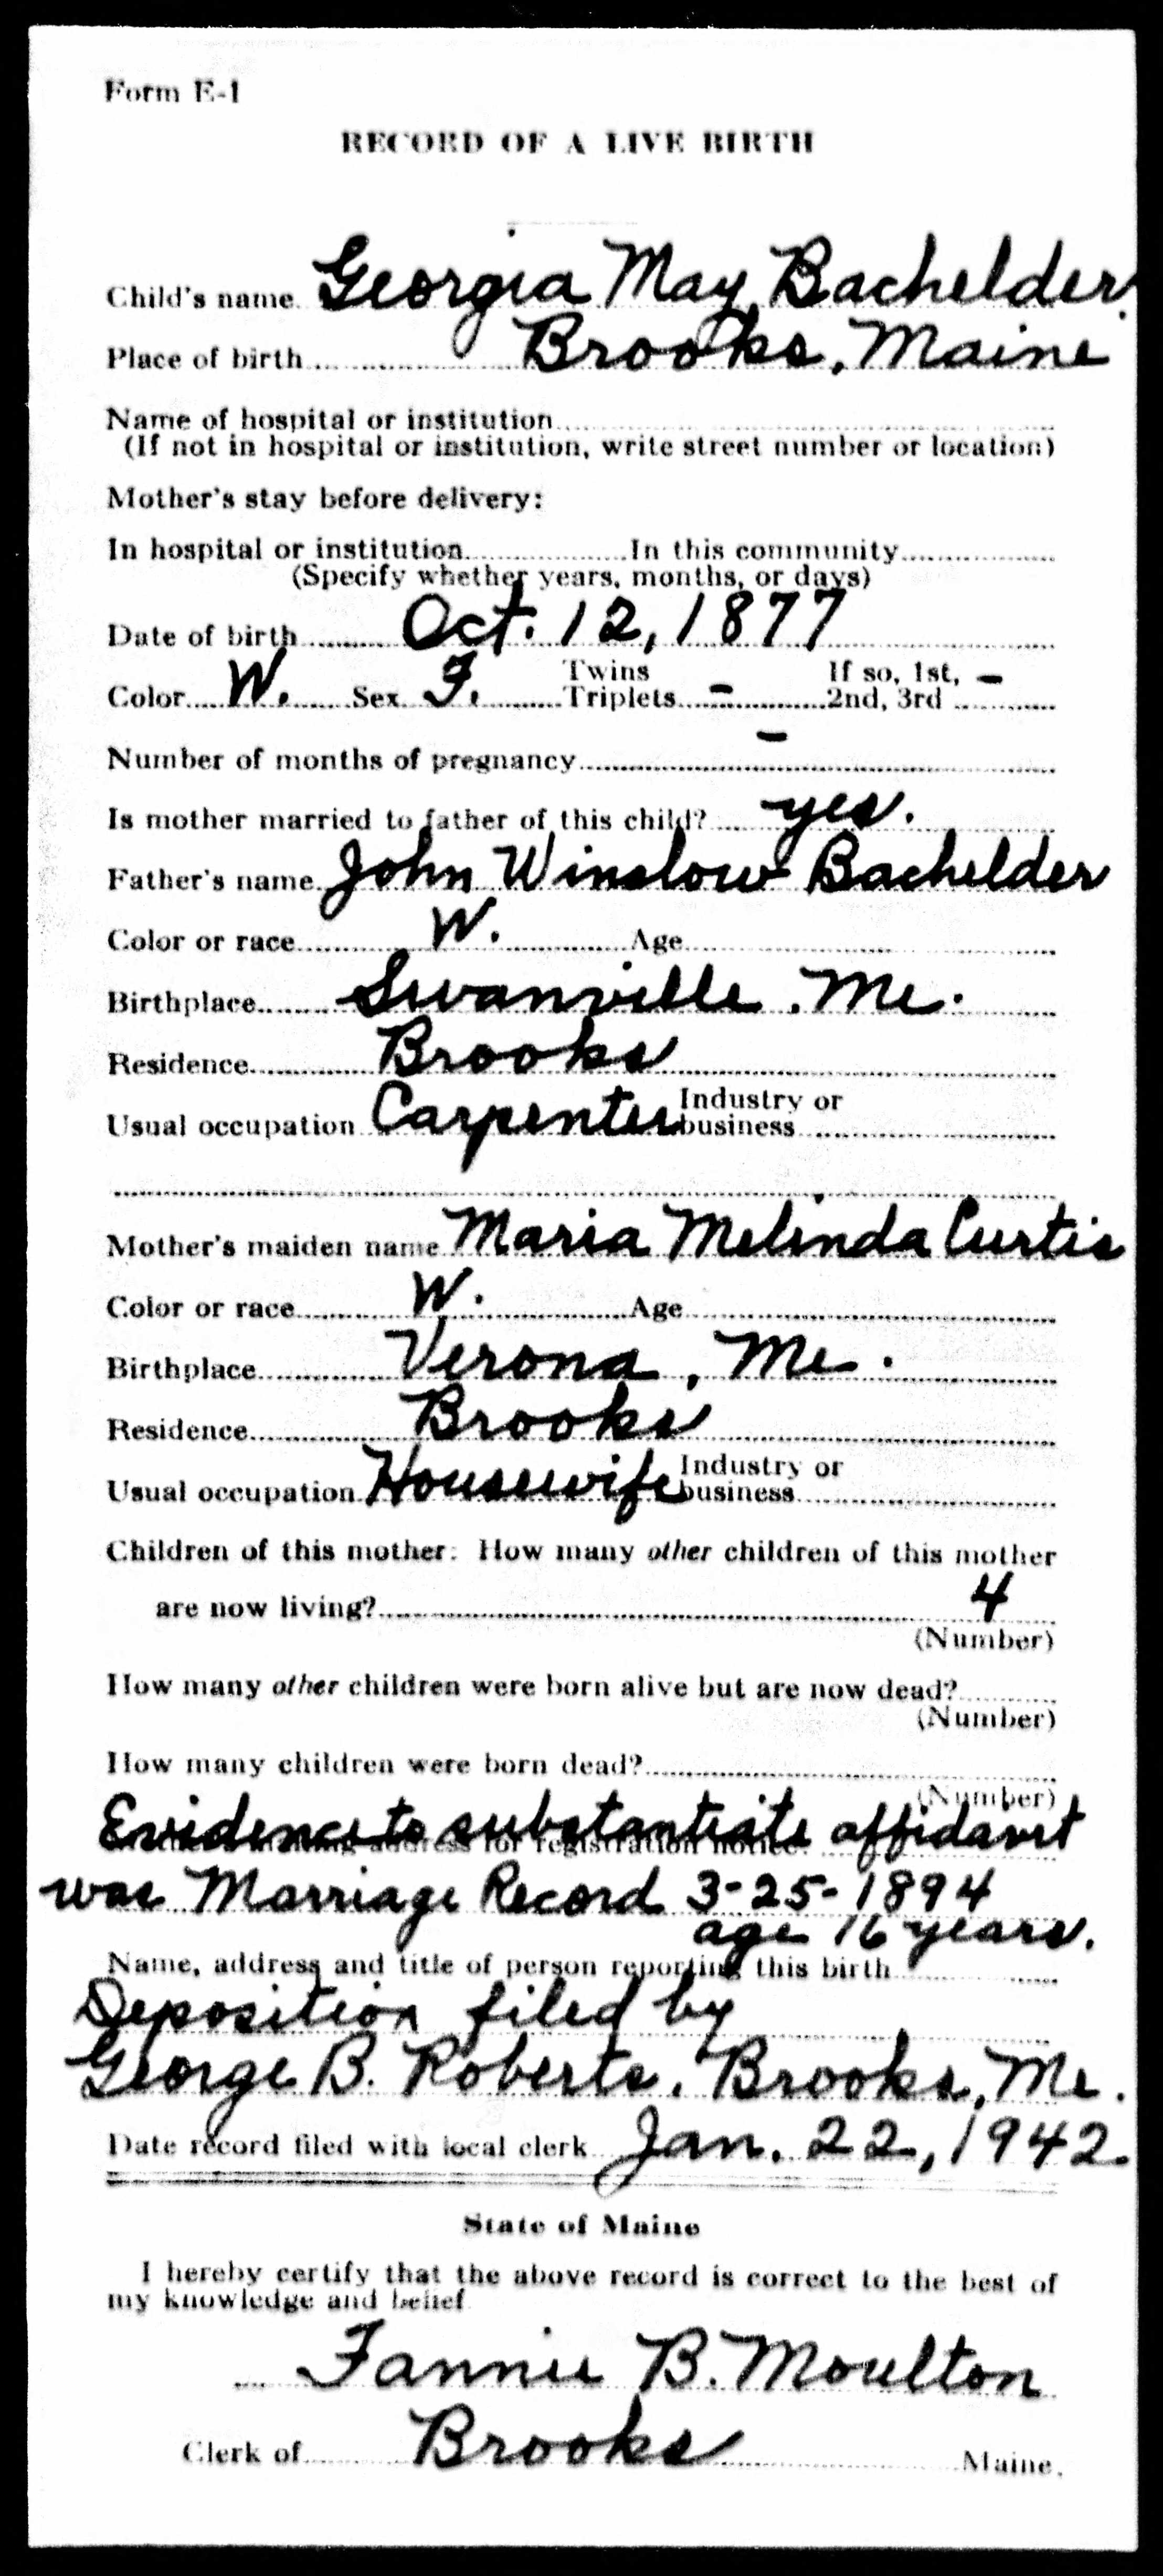 Form E-1
RECORD OF A LIVE BIRTH
Child's name Georgia May Bachelder
Place of birth Brooks, Maine
Name of hospital or institution
(If not in hospital or institution, write street number or location)
Mother's stay before delivery:
In hospital or institution In this community
(Specify whether years, months, or days)
Date of birth Oct. 12, 1877
Color W. Sex F. Twins Triplets - If so, 1st, 2nd, 3rd -
Number of months of pregnancy -
Is mother married to father of this child? yes.
Father's name John Winslow Bachelder
Color or race W. Age
Birthplace Swanville, Me.
Residence Brooks
Usual occupation Carpenter Industry or business
Mother's maiden name Maria Melinda Curtis
Color or race W. Age
Birthplace Verona, Me.
Residence Brooks
Usual occupation Housewife Industry or business
Children of this mother: How many other children of this mother
are now living? 4
(Number)
How many other children were born alive but are now dead?
(Number)
How many children were born dead?
(Number)
Evidence to substantiate affidavit
mailing address for registration notice:
was Marriage Record 3-25-1894
age 16 years.
Name, address and title of person reporting this birth
Deposition filed by
George B. Roberts, Brooks, Me.
Date record filed with local clerk Jan. 22, 1942.
State of Maine
I hereby certify that the above record is correct to the best of
my knowledge and belief
Fannie B. Moulton
Clerk of Brooks Maine.